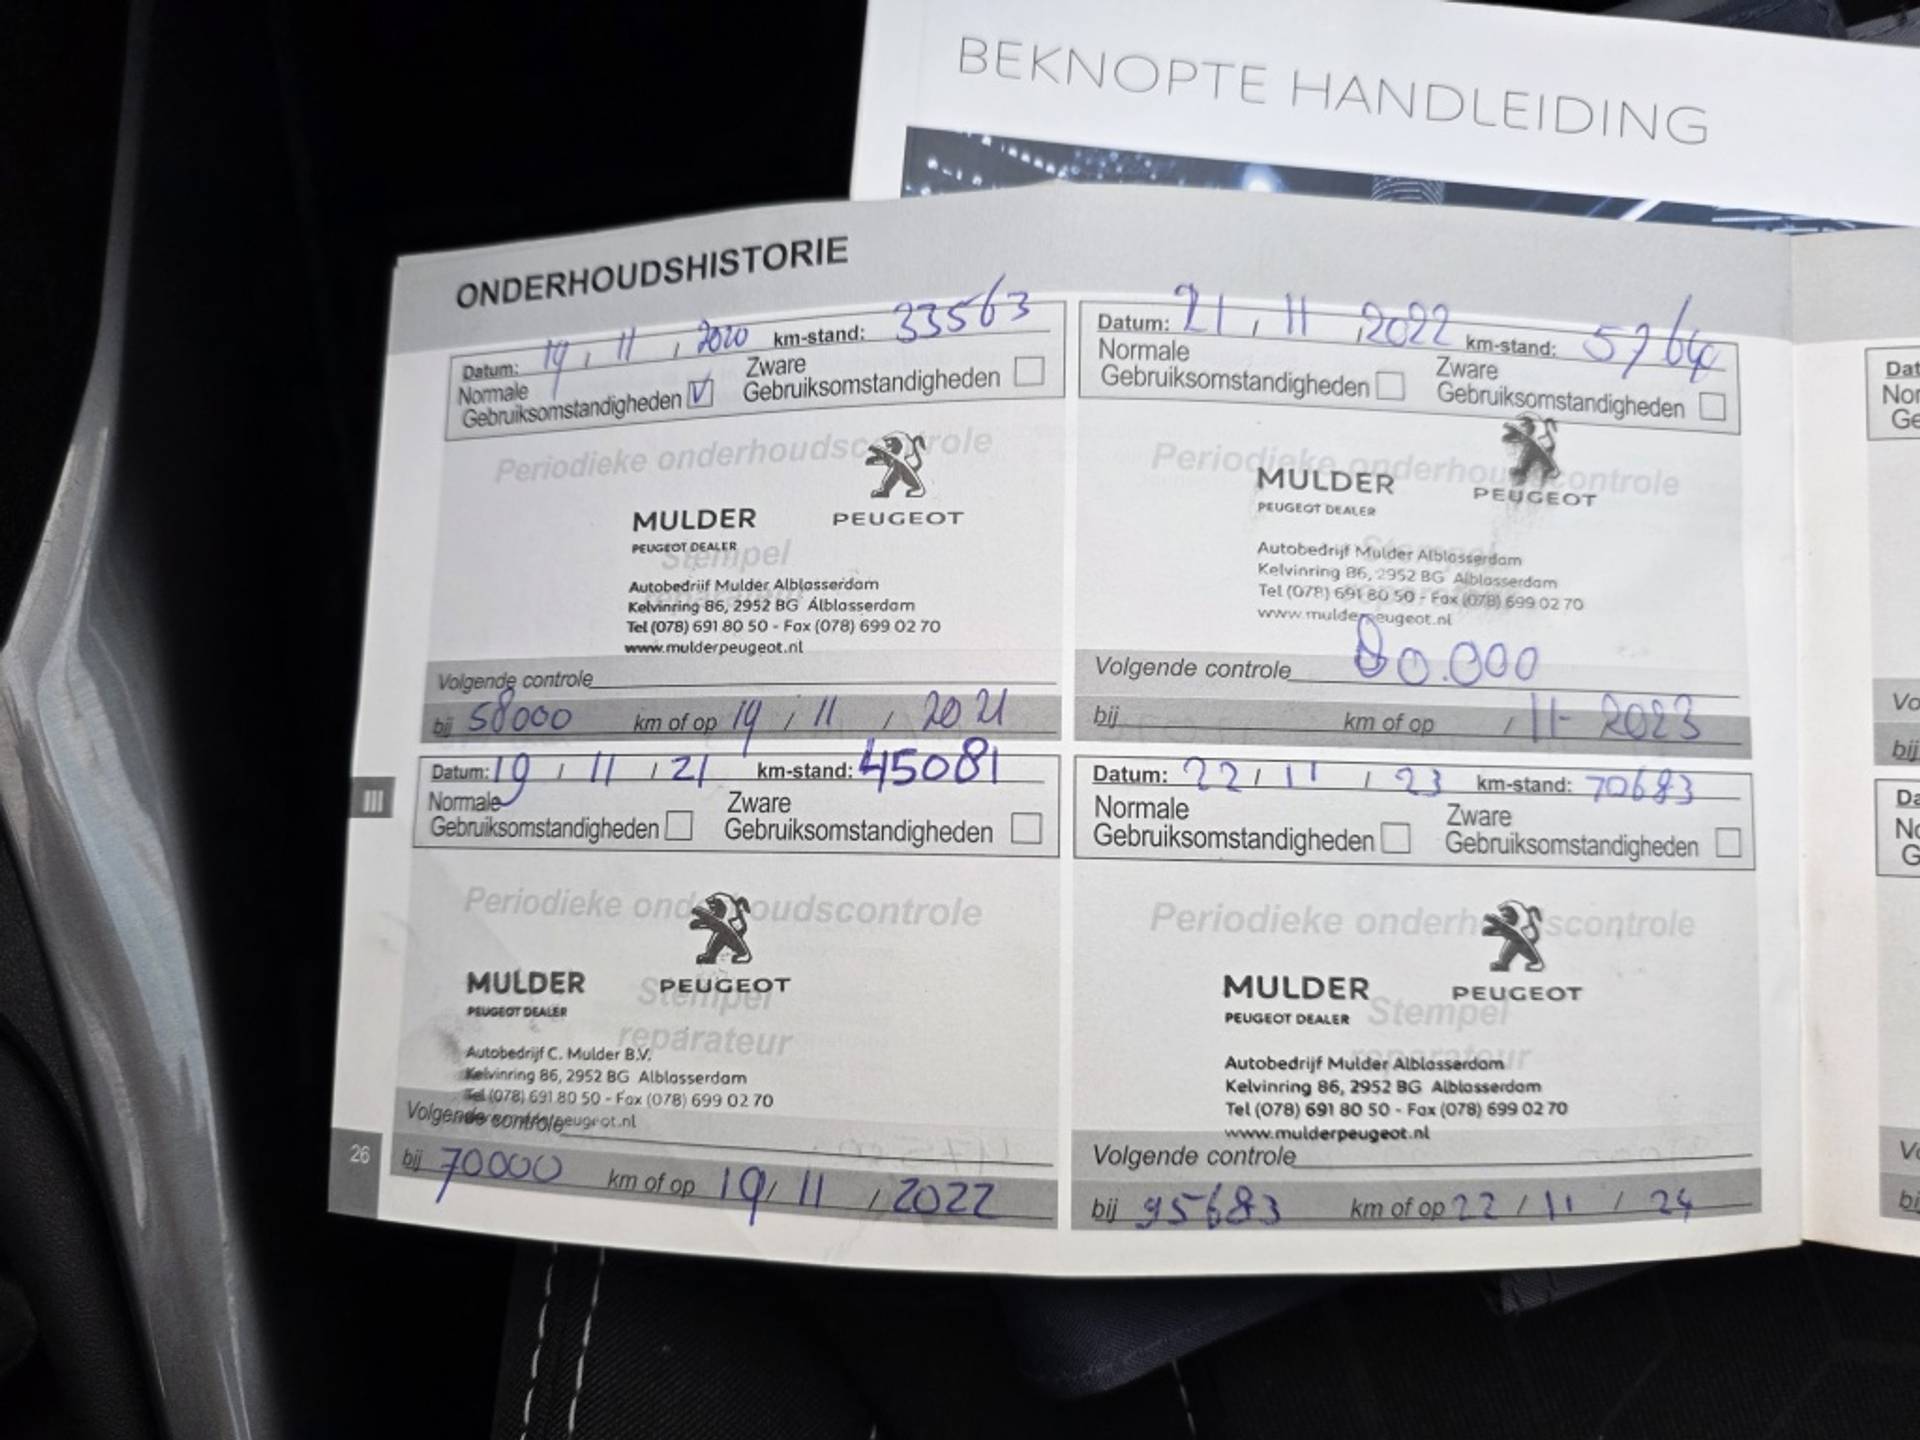 BEKNOPTE HANDLEIDING
ONDERHOUDSHISTORIE
Datum: 19 / 11 / 2020 km-stand: 33563
Normale
Gebruiksomstandigheden V
Zware
Gebruiksomstandigheden
Periodieke onderhoudscontrole
PEUGEOT
MULDER
PEUGEOT DEALER
Stempel
Autobedrijf Mulder Alblasserdam
Kelvinring 86, 2952 BG Alblasserdam
Tel (078) 691 80 50 - Fax (078) 699 02 70
www.mulderpeugeot.nl
Volgende controle
bij 58000 km of op 19 / 11 / 2021
Datum: 19 / 11 / 21 km-stand: 45081
Normale
Gebruiksomstandigheden
Zware
Gebruiksomstandigheden
Periodieke onderhoudscontrole
MULDER
PEUGEOT
PEUGEOT DEALER
Stempel
reparateur
Autobedrijf C. Mulder B.V.
Kelvinring 86, 2952 BG Alblasserdam
Tel (078) 691 80 50 - Fax (078) 699 02 70
Volgende controle
bij 70000 km of op 19 / 11 / 2022
26
III
Datum: 21 / 11 / 2022 km-stand:
Normale
Gebruiksomstandigheden
Zware
Gebruiksomstandigheden
Periodieke onderhoudscontrole
MULDER
PEUGEOT
PEUGEOT DEALER
Autobedrijf Mulder Alblasserdam
Kelvinring 86, 2952 BG Alblasserdam
Tel (078) 691 80 50 - Fax (078) 699 02 70
www.mulderpeugeot.nl
Volgende controle 80.000
bij km of op / 11- 2023
Datum: 22 / 11 / 23 km-stand: 70683
Normale
Gebruiksomstandigheden
Zware
Gebruiksomstandigheden
Periodieke onderhoudscontrole
MULDER
PEUGEOT
PEUGEOT DEALER
Stempel
reparateur
Autobedrijf Mulder Alblasserdam
Kelvinring 86, 2952 BG Alblasserdam
Tel (078) 691 80 50 - Fax (078) 699 02 70
www.mulderpeugeot.nl
Volgende controle
bij 95683 km of op 22 / 11 / 24